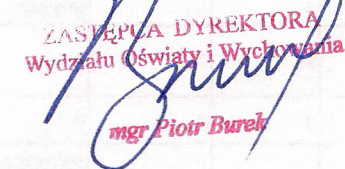 ZASTĘPCA DYREKTORA
Wydziału Oświaty i Wychowania
mgr Piotr Burek